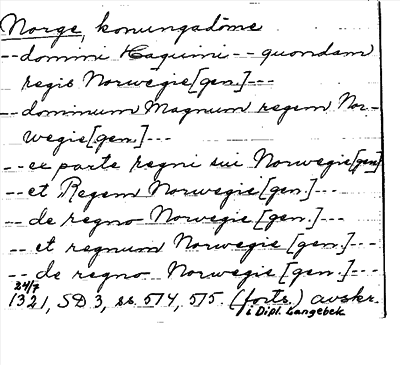 Norge, konungadöme
-- domini Haquini -- quondam
regis Norwegie [gen.] ---
-- dominum Magnum regem Nor-
wegie [gen.] ---
-- ex parte regni sui Norwegie [gen]
-- et Regem Norwegie [gen.] ---
-- de regno Norwegie [gen.] ---
-- et regnum Norwegie [gen.] ---
-- de regno Norwegie [gen.] ---
24/7
1321, SD 3, ss. 514, 515. (forts.) avskr.
i Dipl. Langebek